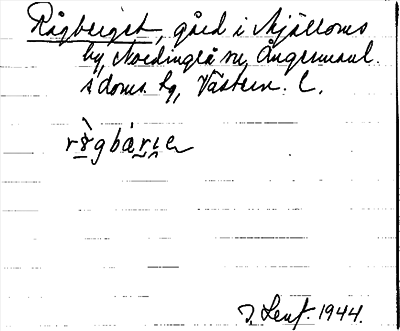 Rågberget, gård i Mjälloms
by, Nordingrå sn, Ångermanl.
s doms. hg, Västern. l.
rɤ̀gbárɩe
J. Lenf. 1944.